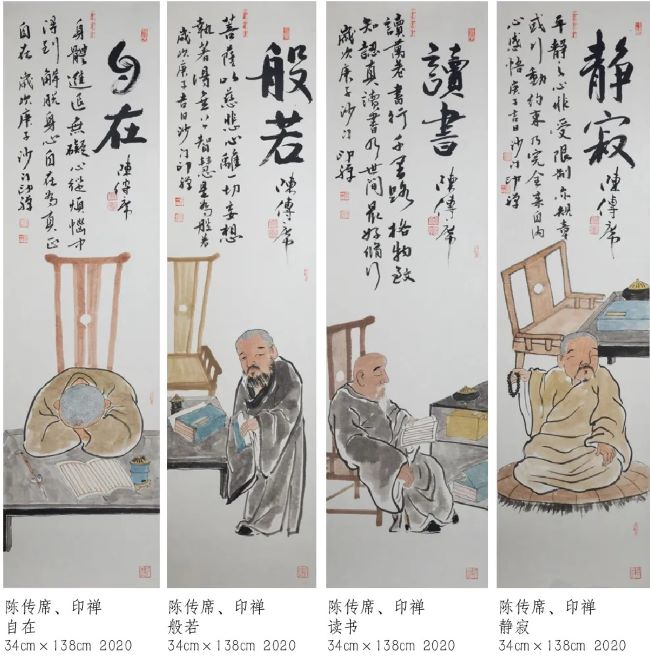 自在
陳傳席
身體進退無礙心從煩惱中
得到解脱身心自在為真正
自在 歲次庚子沙门印禅
般若
陳傳席
菩薩以慈悲心離一切妄想
執著得無上智慧是為般若
歲次庚子吉日沙门印禅
讀書
陳傳席
讀萬卷書行千里路格物致
知認真讀書乃世間最好修行
歲次庚子沙门印禅
靜寂
陳傳席
平静之心非受限制亦規章
或行動約束乃完全来自内
心感悟庚子吉日沙门印禅
陈传席、印禅
自在
34cm×138cm 2020
陈传席、印禅
般若
34cm×138cm 2020
陈传席、印禅
读书
34cm×138cm 2020
陈传席、印禅
静寂
34cm×138cm 2020